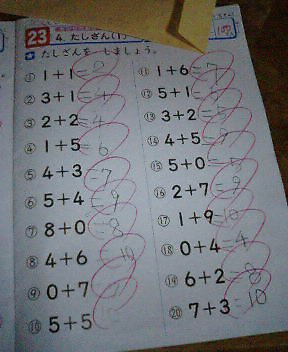 23 4. たしざん(1)
たしざんを しましょう。
① 1+1=2
② 3+1=4
③ 2+2=4
④ 1+5=6
⑤ 4+3=7
⑥ 5+4=9
⑦ 8+0=8
⑧ 4+6=10
⑨ 0+7
⑩ 5+5
⑪ 1+6=7
⑫ 5+1=
⑬ 3+2=5
⑭ 4+5=9
⑮ 5+0=5
⑯ 2+7=9
⑰ 1+9=10
⑱ 0+4=4
⑲ 6+2=8
⑳ 7+3=10